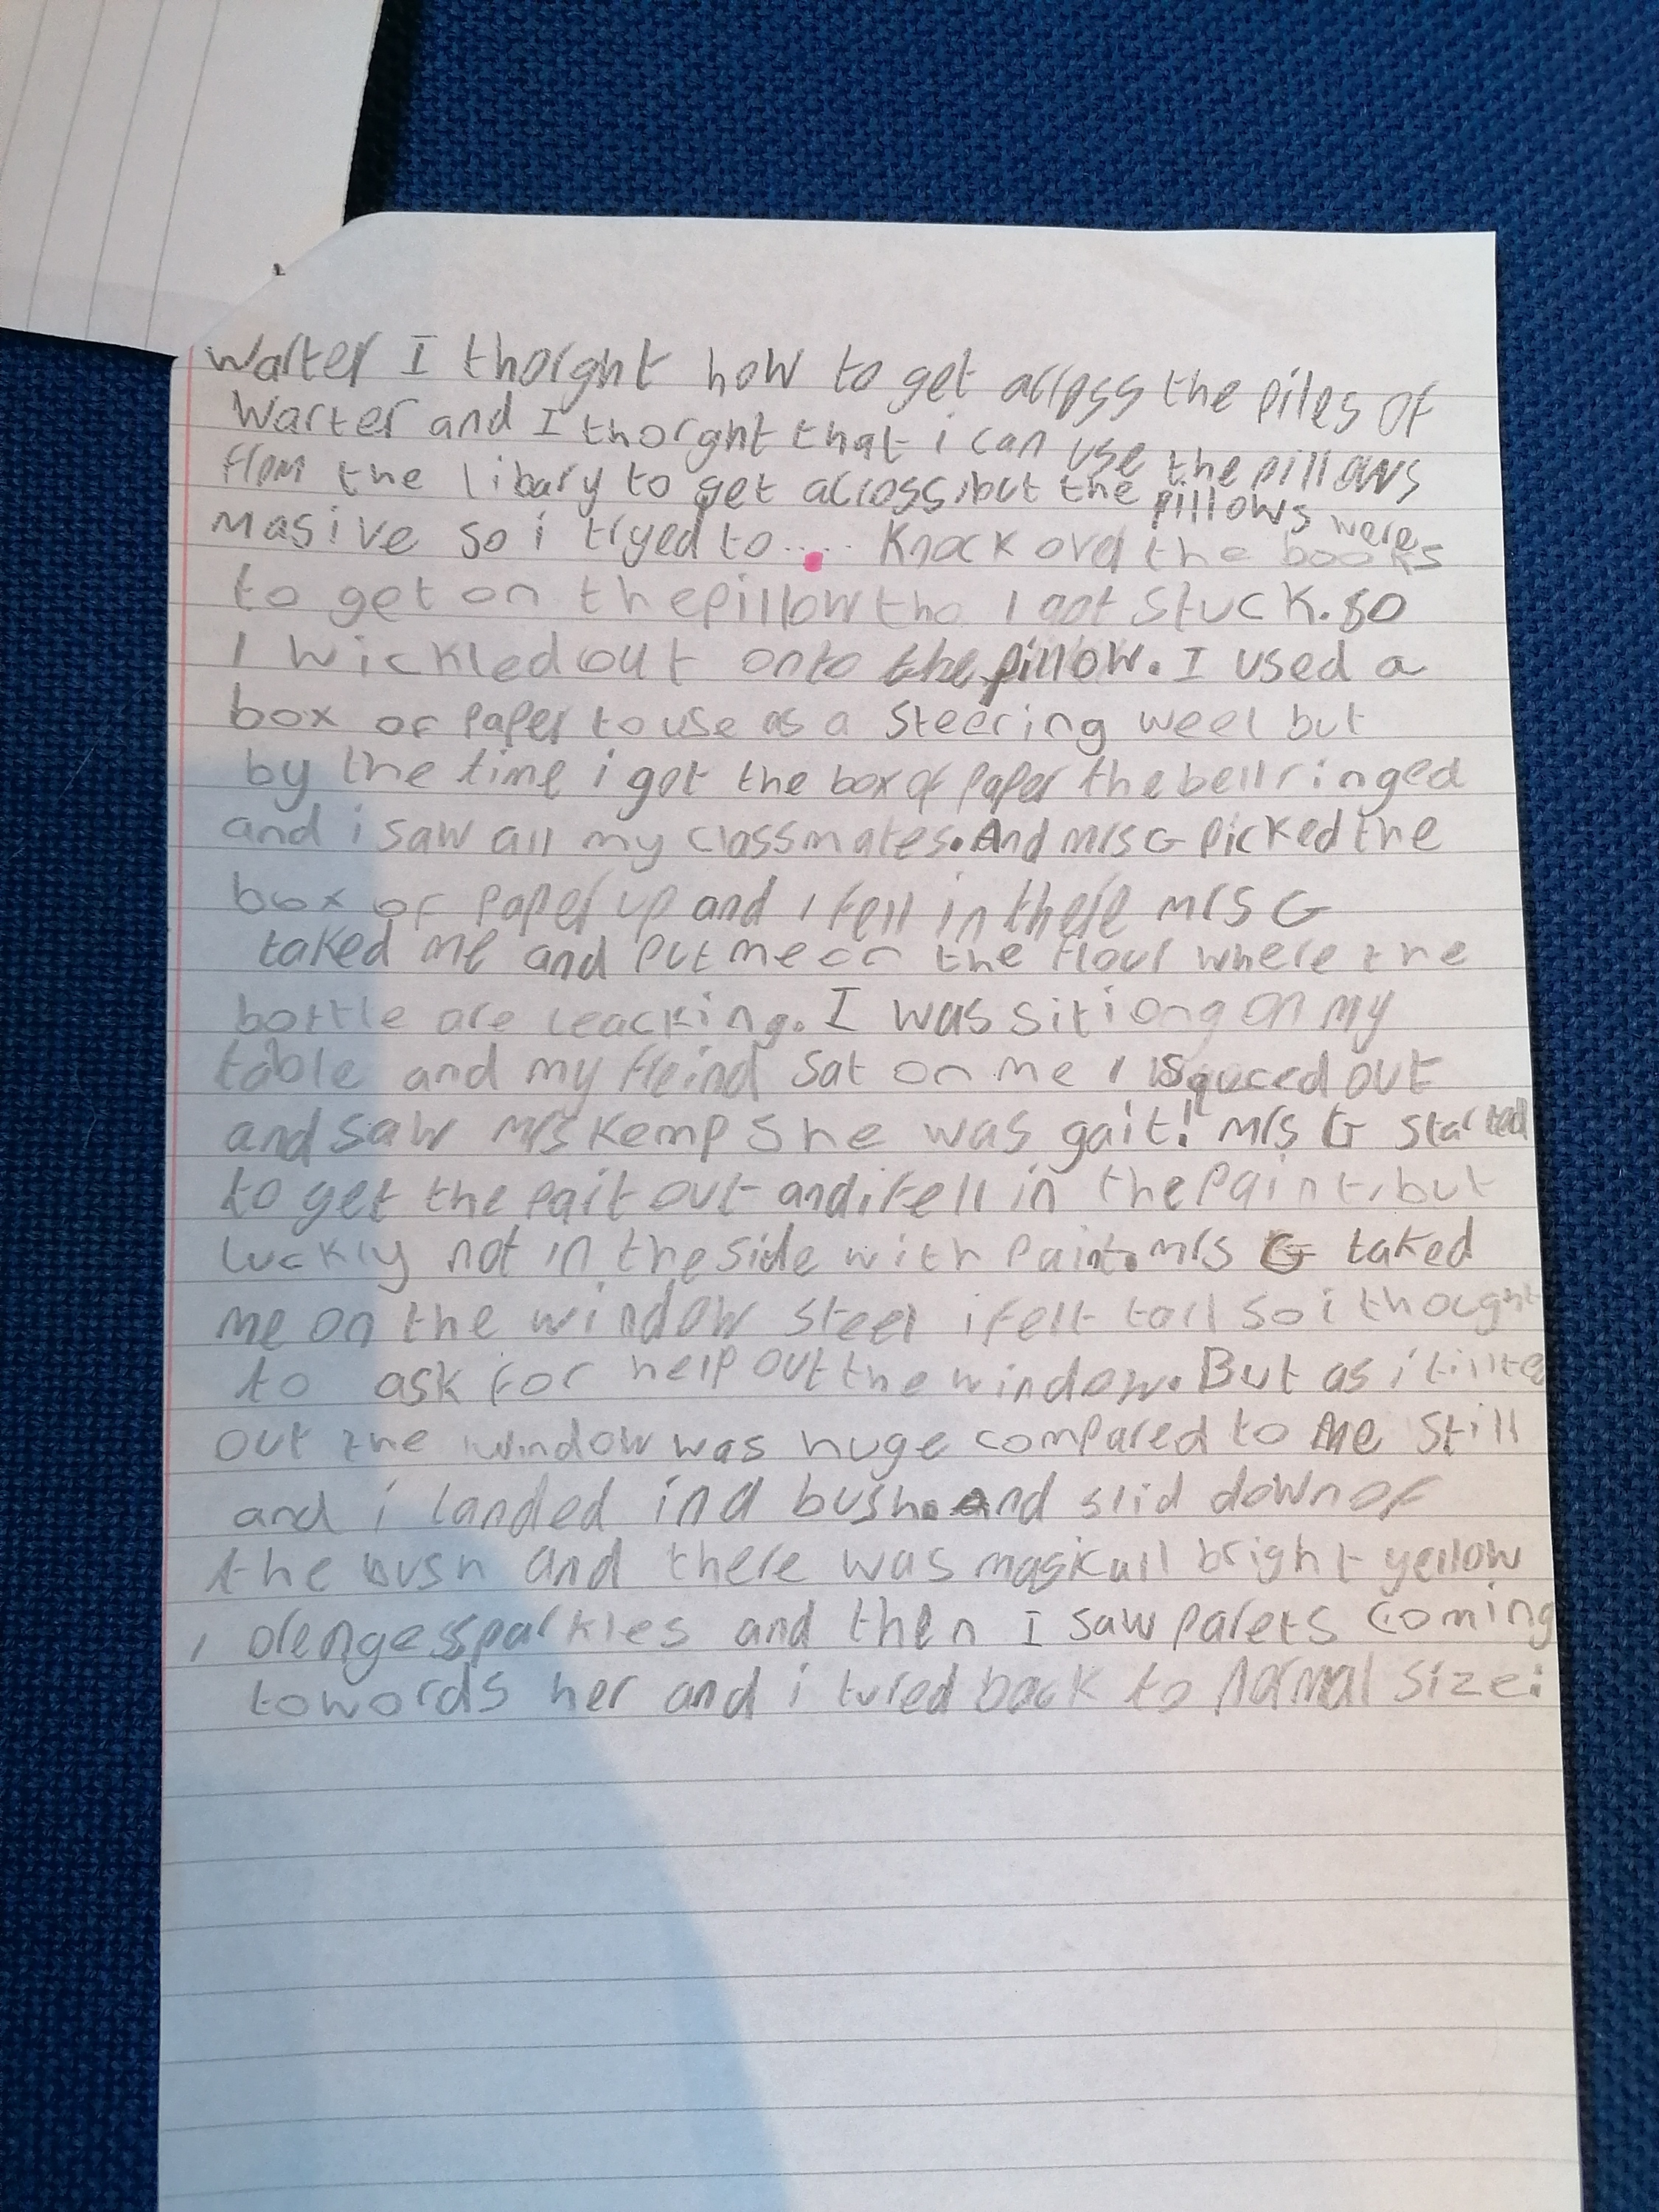 Warter I thorght how to get across the piles of
Warter and I thorght that i can use the pillows
from the libary to get across, but the pillows were
masive so i tryed to..... Knock over the books
to get on the pillow tho I got stuck. so
I wickled out onto the pillow. I used a
box of paper to use as a steering weel but
by the time i got the box of paper the bell ringed
and i saw all my classmates. And mrs G picked the
box of paper up and i fell in there mrs G
taked me and put me on the flour where the
bottle are leacking. I was sitiong on my
table and my freind sat on me I squced out
and saw mrs Kemp she was gait! mrs G started
to get the pait out and i fell in the paint, but
luckly not in the side with paint. mrs G taked
me on the window steel i felt tall so i thought
to ask for help out the window. But as i tillte
out the window was huge compared to me still
and i landed in a bush. And slid down of
the bush and there was magikull bright yellow
, orenge sparkles and then I saw parets coming
towords her and i tured back to normal size: